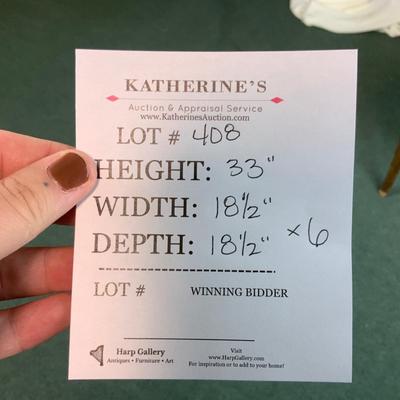 KATHERINE'S
Auction & Appraisal Service
www.KatherinesAuction.com
LOT # 408
HEIGHT: 33"
WIDTH: 18 1/2"
DEPTH: 18 1/2" × 6
LOT # WINNING BIDDER
Harp Gallery
Antiques • Furniture • Art
Visit
www.HarpGallery.com
For inspiration or to add to your home!